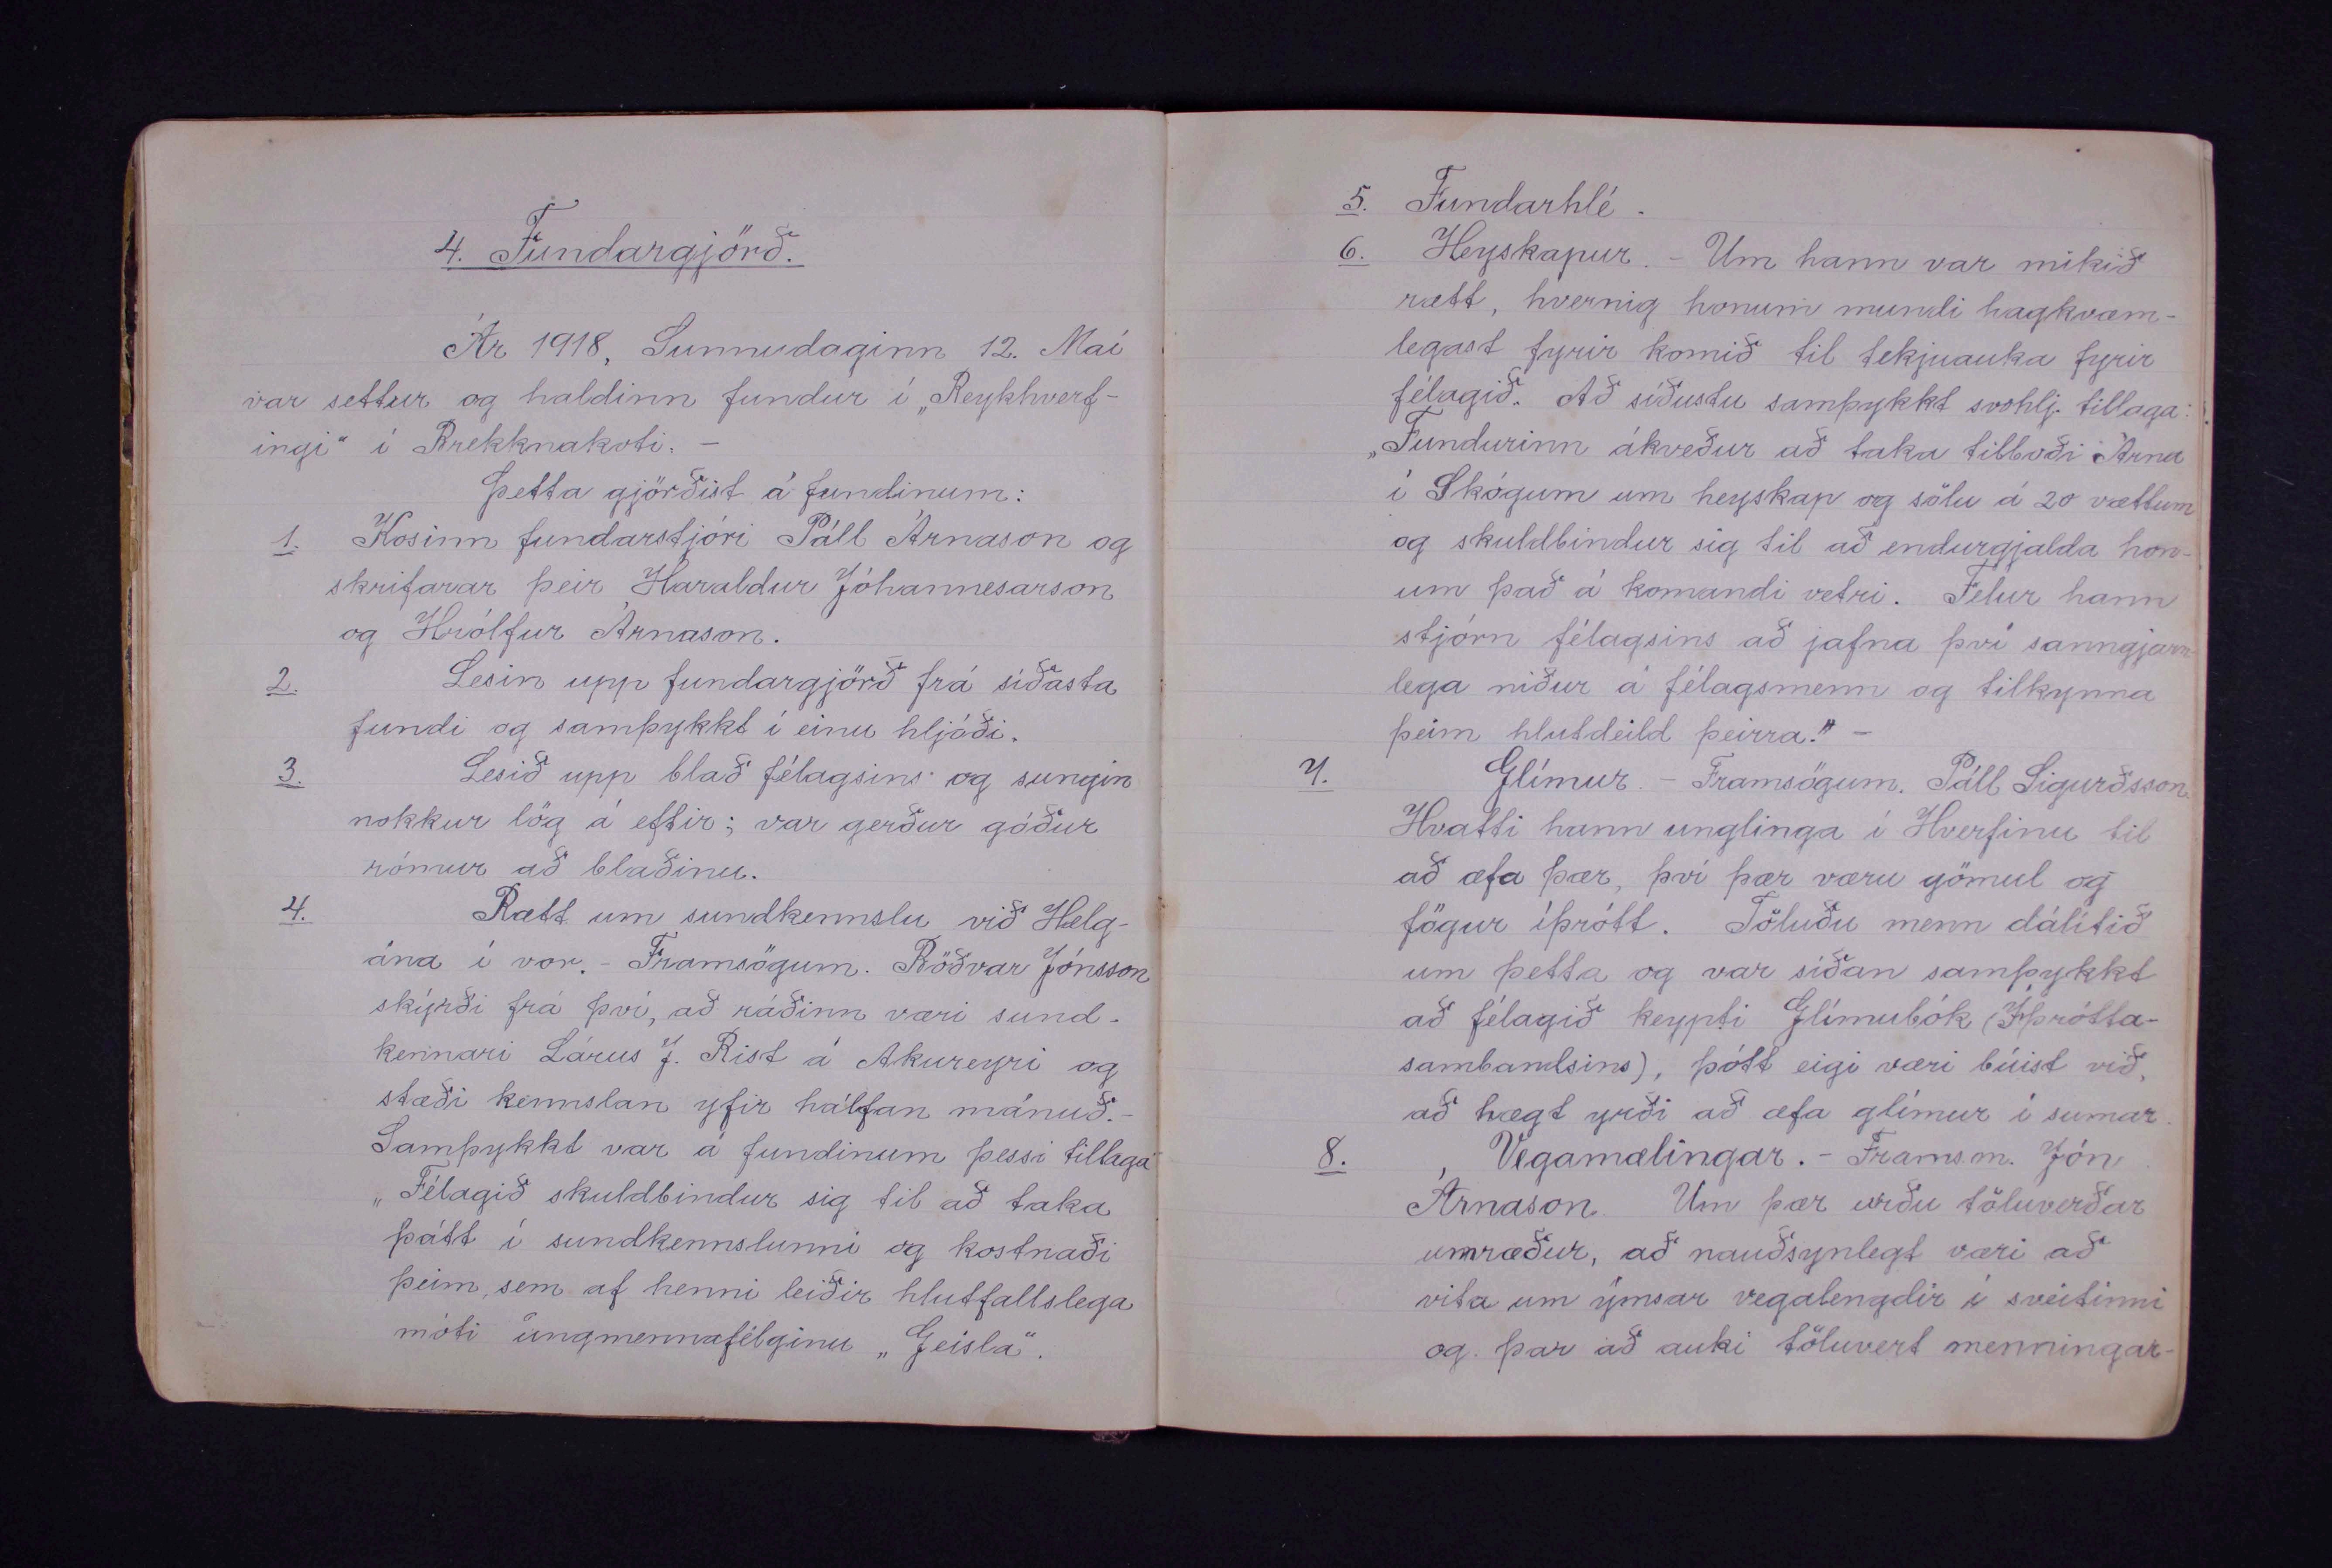 4. Fundargjörð.
Ár 1918, Sunnudaginn 12. Maí
var settur og haldinn fundur í „Reykhverf-
ingi“ í Brekknakoti. -
Þetta gjörðist á fundinum:
1. Kosinn fundarstjóri Páll Árnason og
skrifarar þeir Haraldur Jóhannesarson
og Hrólfur Árnason.
2. Lesin upp fundargjörð frá síðasta
fundi og samþykkt í einu hljóði.
3. Lesið upp blað félagsins og sungin
nokkur lög á eftir; var gerður góður
rómur að blaðinu.
4. Rætt um sundkennslu við Helg-
ána í vor. - Framsögum. Böðvar Jónsson
skýrði frá því, að ráðinn væri sund-
kennari Lárus J. Rist á Akureyri og
stæði kennslan yfir hálfan mánuð. -
Samþykkt var á fundinum þessi tillaga
„Félagið skuldbindur sig til að taka
þátt í sundkennslunni og kostnaði
þeim, sem af henni leiðir hlutfallslega
móti ungmennafélginu „Geisla“.
5. Fundarhlé.
6. Heyskapur. - Um hann var mikið
rætt, hvernig honum mundi hagkvæm-
legast fyrir komið til tekjuauka fyrir
félagið. Að síðustu samþykkt svohlj. tillaga:
„Fundurinn ákveður að taka tilboði Árna
í Skógum um heyskap og sölu á 20 vættum
og skuldbindur sig til að endurgjalda hon-
um það á komandi vetri. Felur hann
stjórn félagsins að jafna því sanngjarn-
lega niður á félagsmenn og tilkynna
þeim hlutdeild þeirra.“ -
7. Glímur. - Framsögum. Páll Sigurðsson.
Hvatti hann unglinga í Hverfinu til
að æfa þær, því þær væru gömul og
fögur íþrótt. Töluðu menn dálítið
um þetta og var síðan samþykkt
að félagið keypti Glímubók (Íþrótta-
sambandsins), þótt eigi væri búist við,
að hægt yrði að æfa glímur í sumar.
8. Vegamælingar. - Framsm. Jón
Árnason. Um þær urðu töluverðar
umræður, að nauðsynlegt væri að
vita um ýmsar vegalengdir í sveitinni
og þar að auki töluvert menningar-